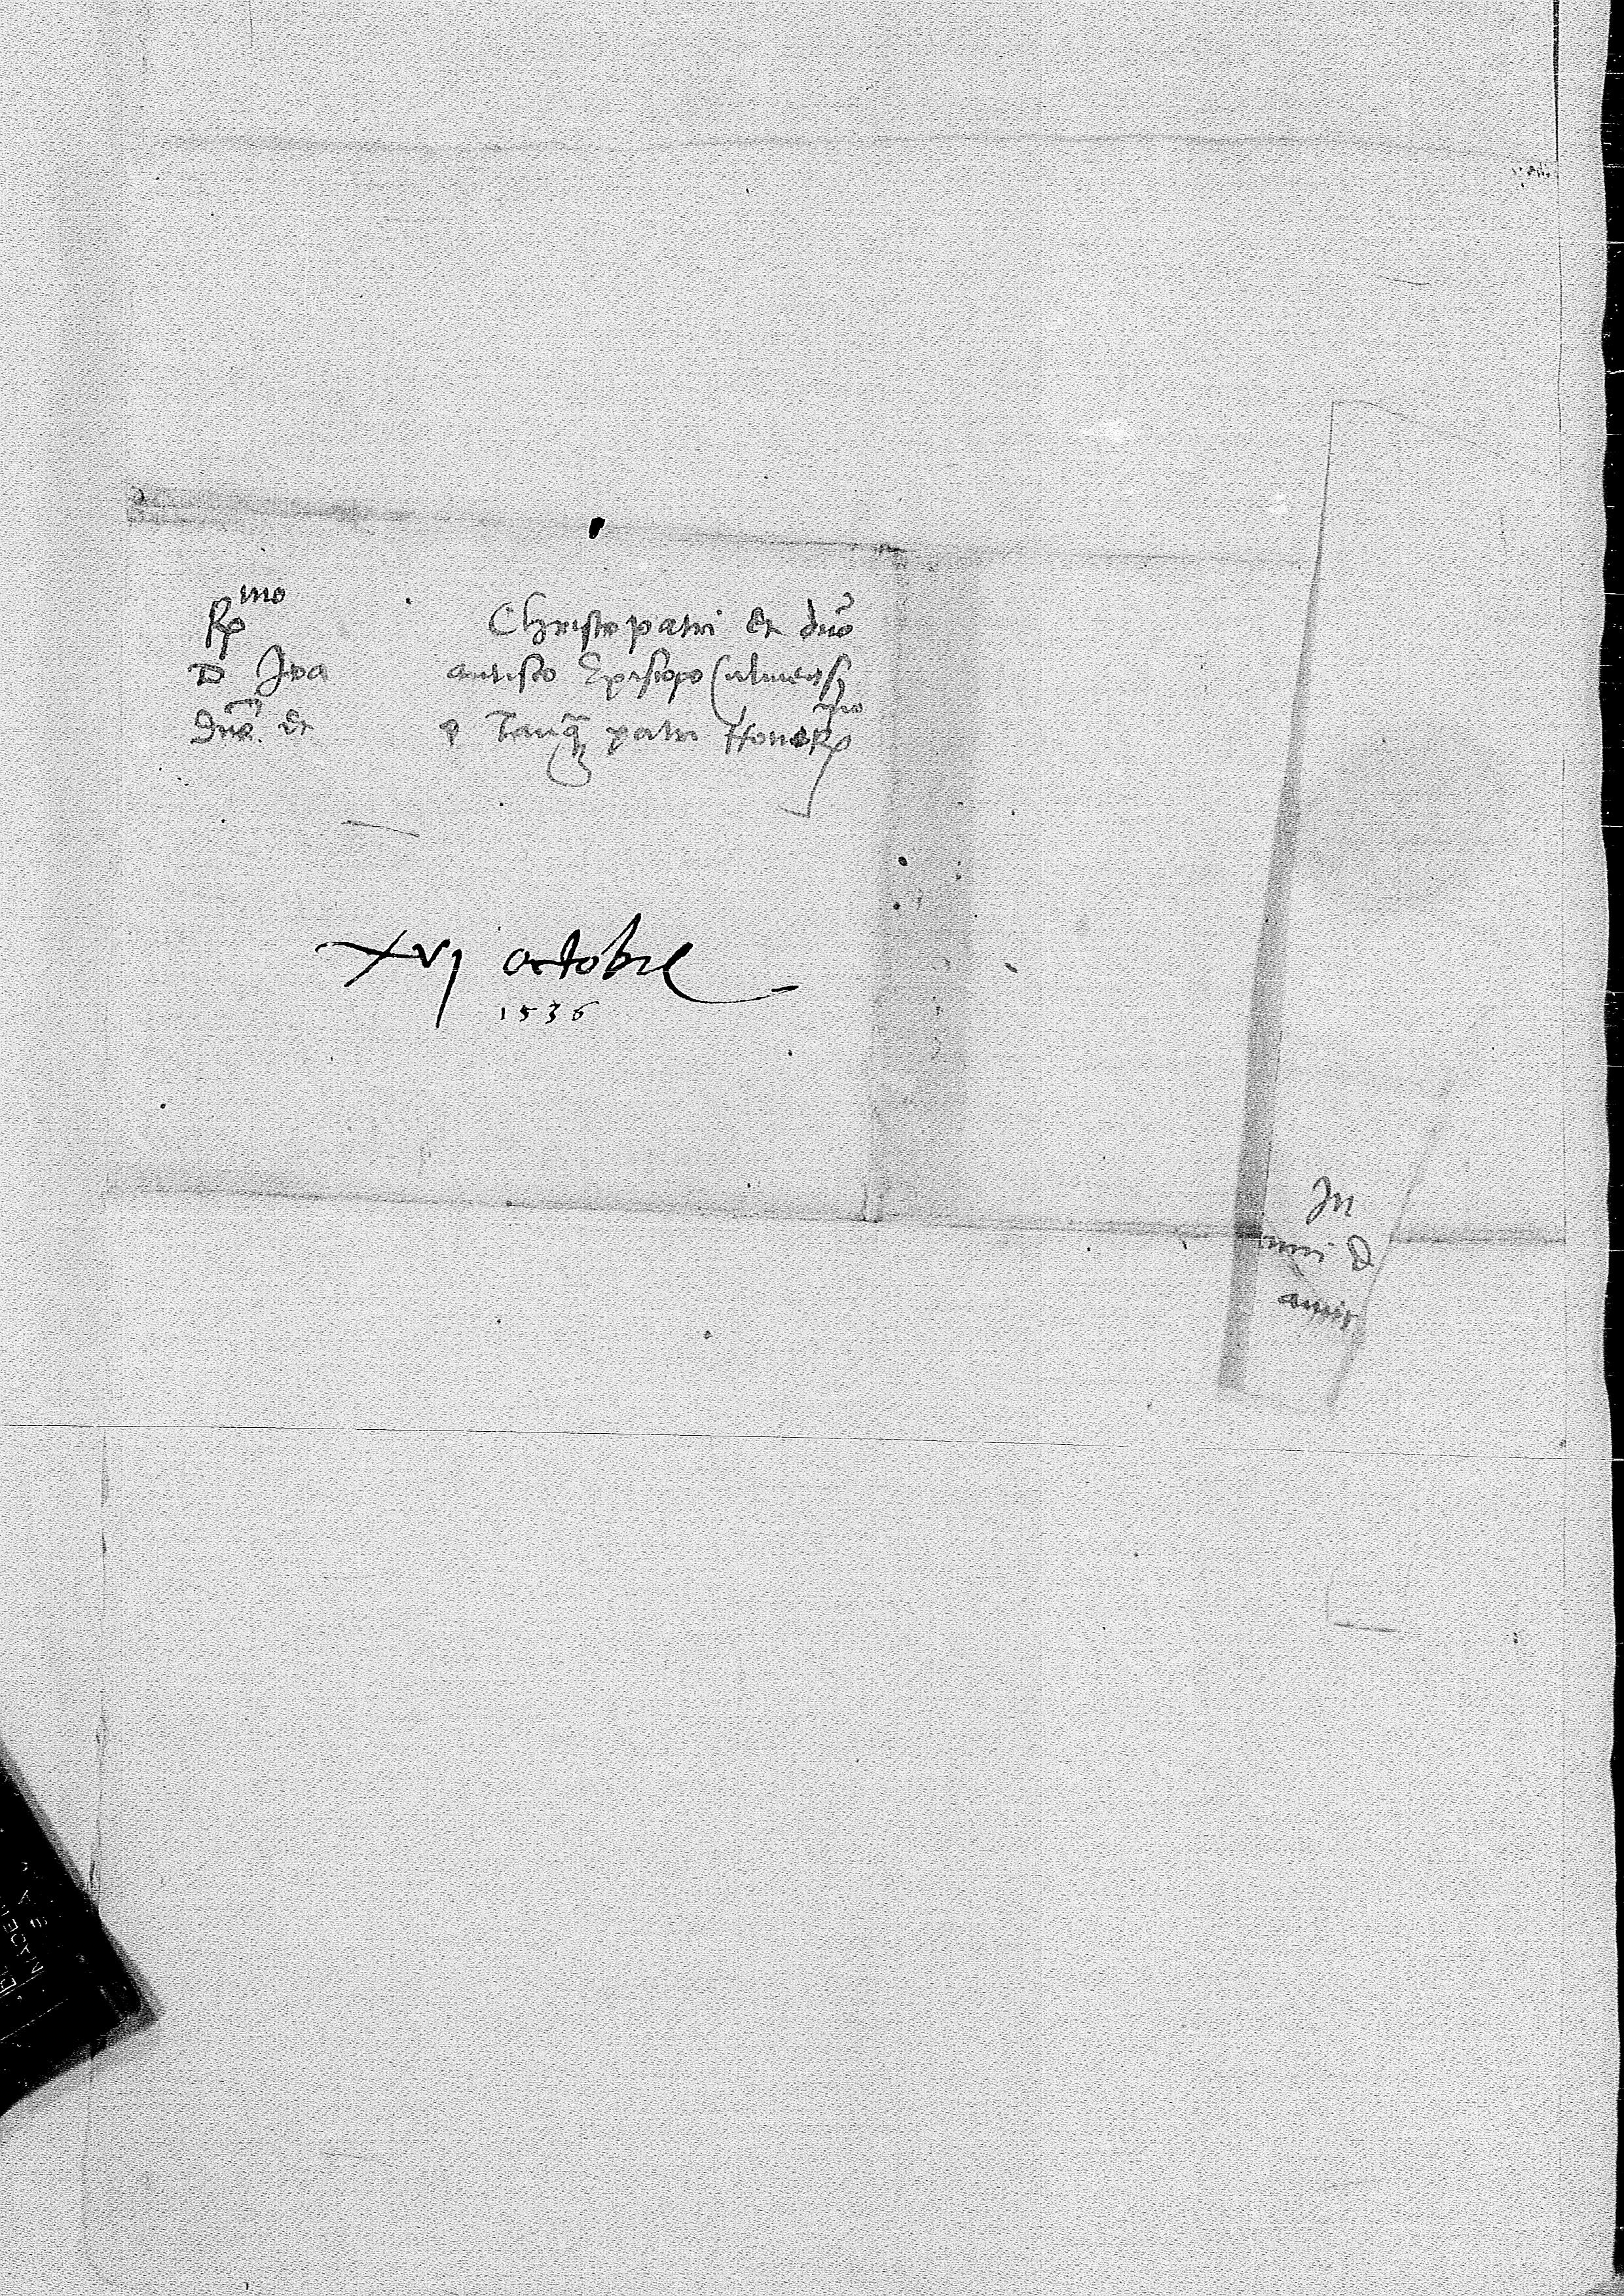 Rmo Christo patri et dno
D Joa antisco Episcopo Culmensi
Dno et o Tanq patri Honormo
xvj octobre
1536
In
nni D
amic